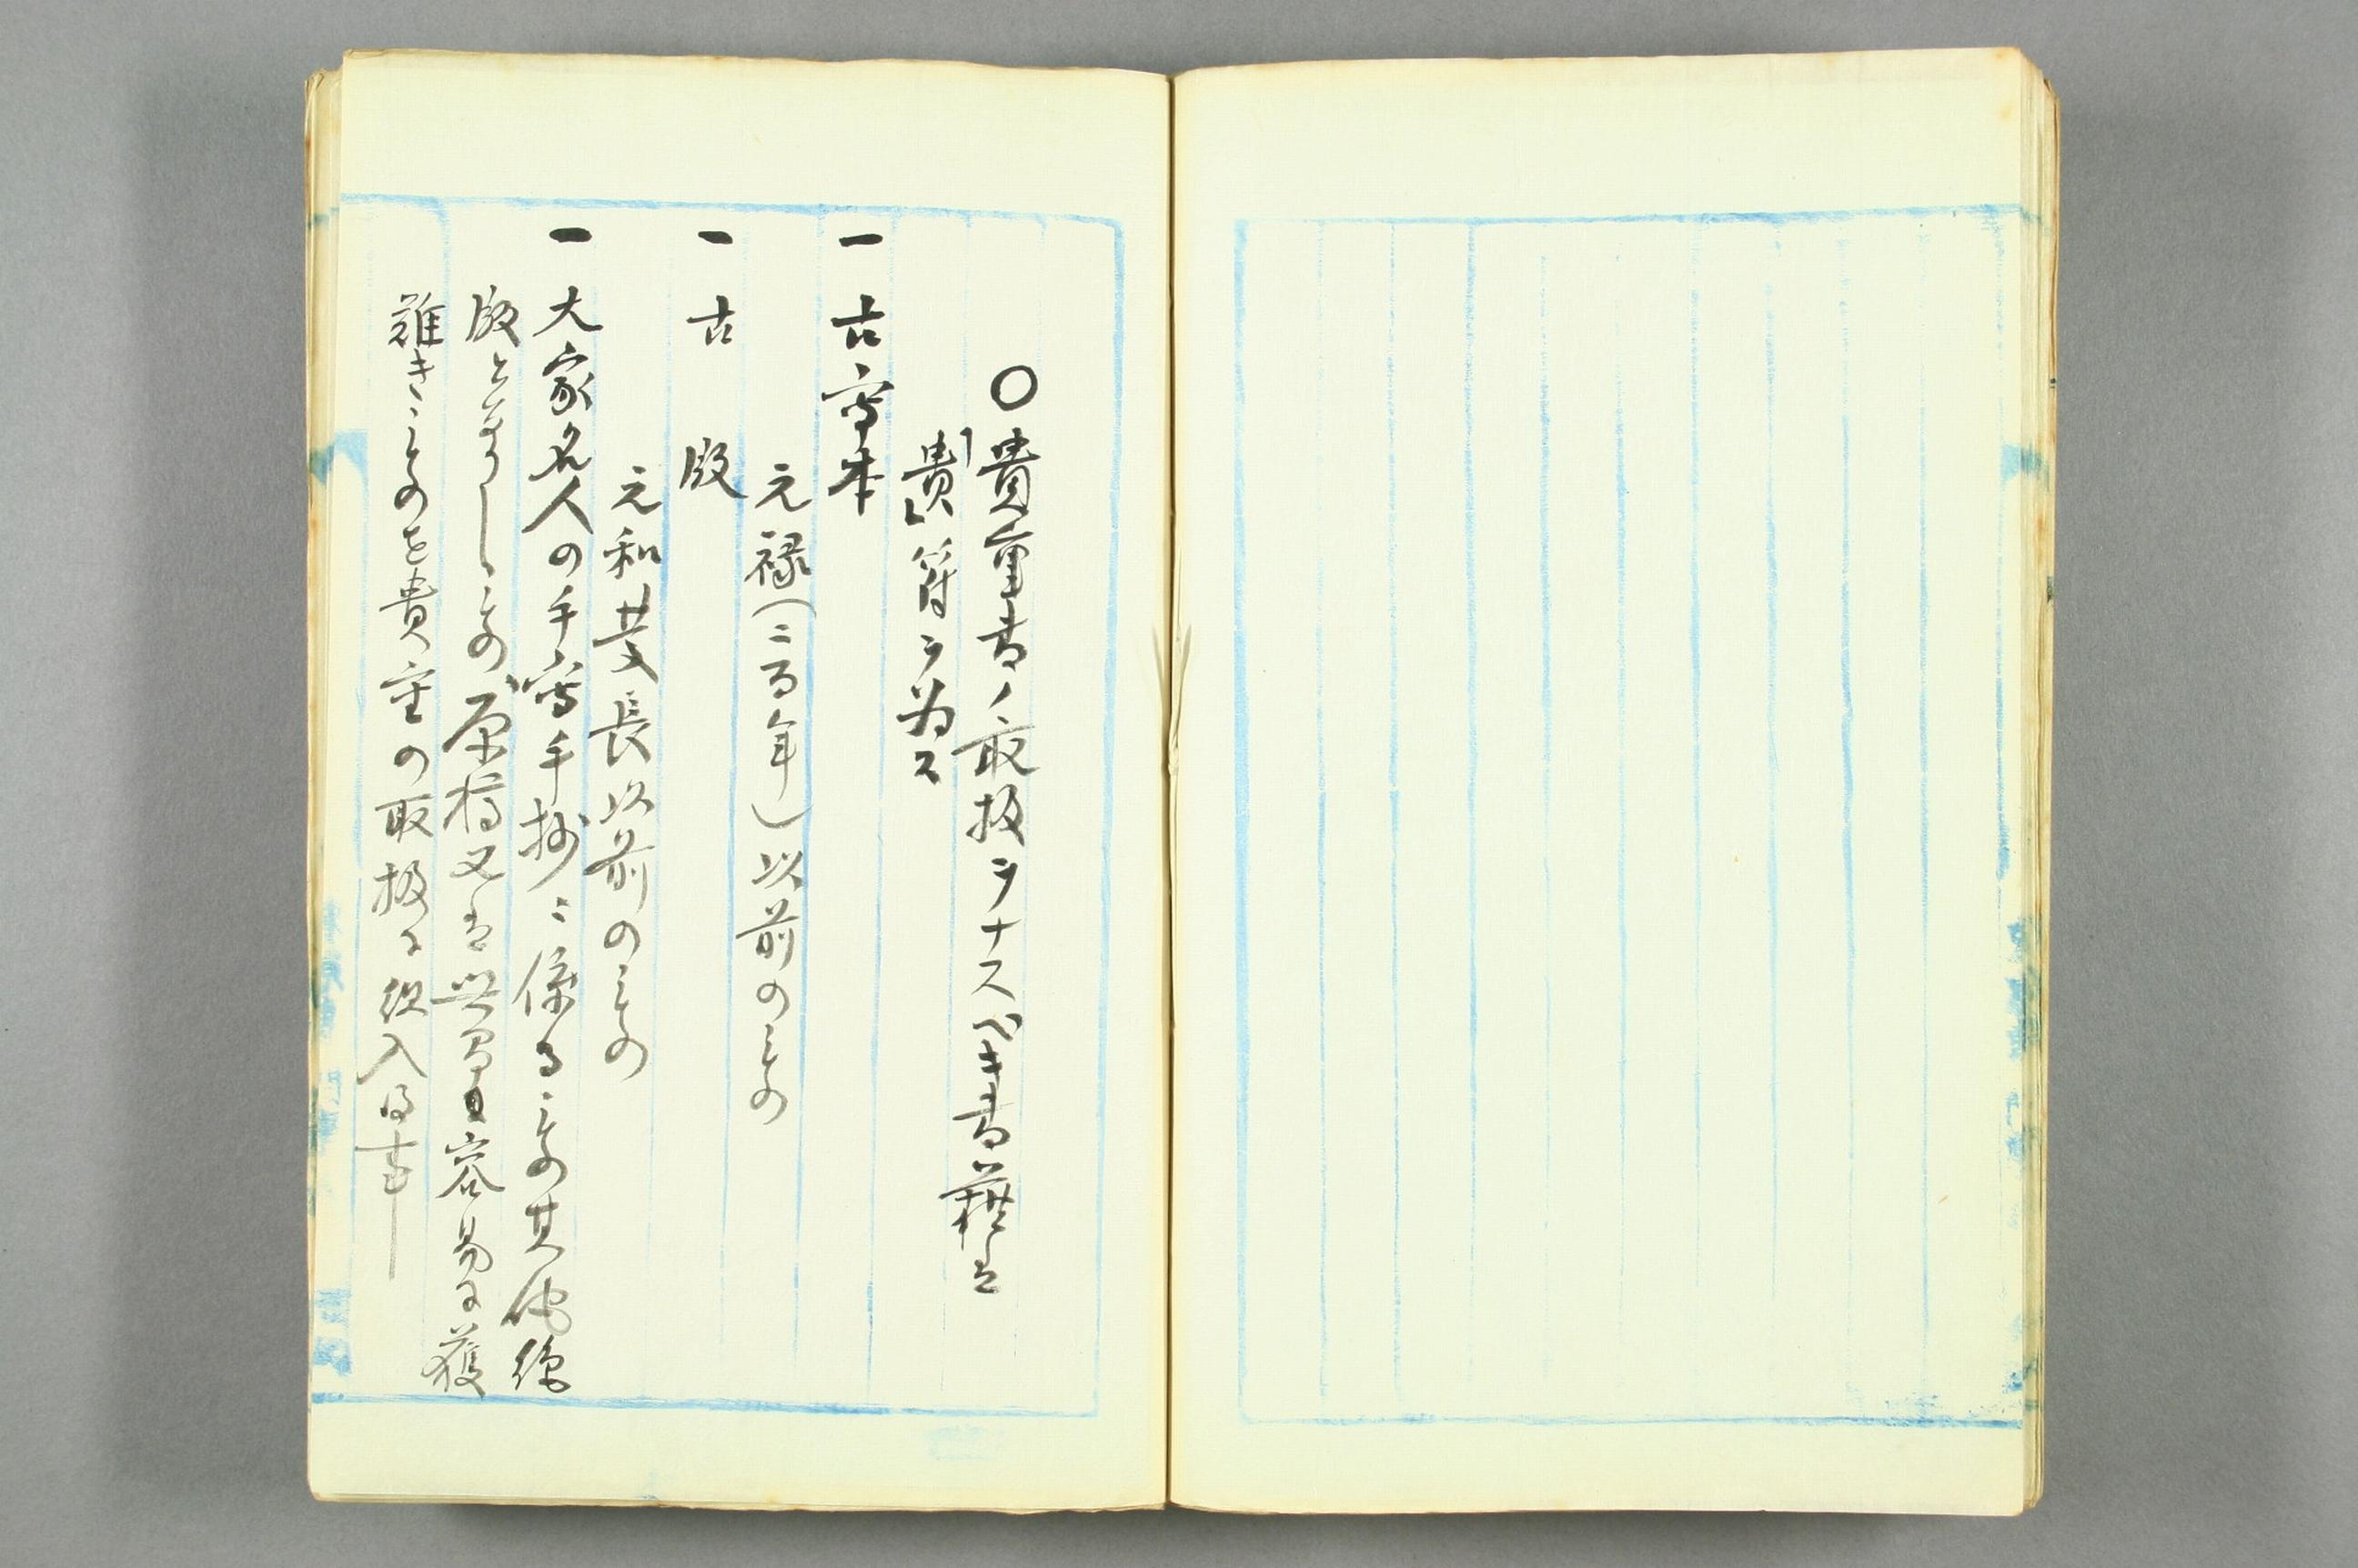 ○貴重書ノ取扱ヲナスベキ書籍は
「貴」符ヲ為ス
一 古写本
元禄(二百年)以前のもの
一 古 版
元和慶長以前のもの
一 大家名人の手写手抄ニ係るもの其他絶
版となりしもの原稿又は容易に獲
難きものを貴重の取扱に組入る事